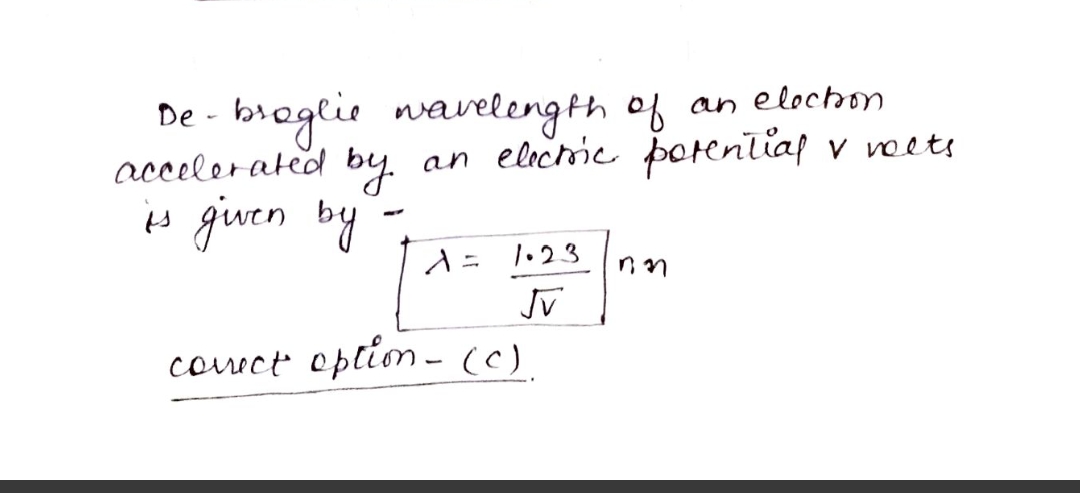 De-broglie wavelength of an eloctron
accelerated by an electric potential v volts
is given by -
λ = 1.23 / √V nm
correct option - (c).